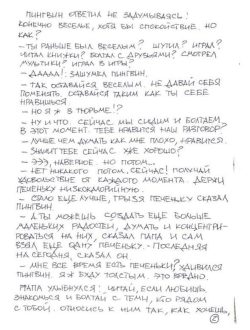 ПИНГВИН ОТВЕТИЛ НЕ ЗАДУМЫВАЯСЬ!
КОНЕЧНО ВЕСЕЛЬЕ, ХОТЯ БЫ СПОКОЙСТВИЕ. НО
КАК?
- ТЫ РАНЬШЕ БЫЛ ВЕСЕЛЫМ? ШУТИЛ? ИГРАЛ?
ЧИТАЛ КНИЖКИ? БОЛТАЛ С ДРУЗЬЯМИ? СМОТРЕЛ
МУЛЬТИКИ? ИГРАЛ В ИГРЫ?
- ДАААА!, ЗАШУМЕЛ ПИНГВИН.
- ТАК ОСТАВАЙСЯ ВЕСЕЛЫМ. НЕ ДАВАЙ СЕБЯ
ПОМЕНЯТЬ. ОСТАВАЙСЯ ТАКИМ КАК ТЫ СЕБЕ
НРАВИШЬСЯ
- НО Я Ж В ТЮРЬМЕ!?
- НУ И ЧТО. СЕЙЧАС МЫ СИДИМ И БОЛТАЕМ.
В ЭТОТ МОМЕНТ. ТЕБЕ НРАВИТСЯ НАШ РАЗГОВОР?
- ЛУЧШЕ ЧЕМ ДУМАТЬ КАК МНЕ ПЛОХО, НРАВИТСЯ.
- ЗНАЧИТ ТЕБЕ СЕЙЧАС УЖЕ ХОРОШО?
- ЭЭЭ, НАВЕРНОЕ. НО ПОТОМ...
- НЕТ НИКАКОГО ПОТОМ. СЕЙЧАС! ПОЛУЧАЙ
УДОВОЛЬСТВИЕ ОТ КАЖДОГО МОМЕНТА. ДЕРЖИ
ПЕЧЕНЬКУ НИЗКОКАЛОРИЙНУЮ.
- СТАЛО ЕЩЕ ЛУЧШЕ, ГРЫЗЯ ПЕЧЕНЬКУ СКАЗАЛ
ПИНГВИН
- А ТЫ МОЖЕШЬ СОЗДАТЬ ЕЩЕ БОЛЬШЕ
МАЛЕНЬКИХ РАДОСТЕЙ, ДУМАТЬ И КОНЦЕНТРИ-
РОВАТЬСЯ НА НИХ, СКАЗАЛ ПАПА И САМ
ВЗЯЛ ЕЩЕ ОДНУ ПЕЧЕНЬКУ. - ПОСЛЕДНЯЯ
НА СЕГОДНЯ, СКАЗАЛ ОН
- МНЕ ВСЕ ВРЕМЯ ЕСТЬ ПЕЧЕНЬКИ? УДИВИЛСЯ
ПИНГВИН. Я Ж БУДУ ТОЛСТЫМ. ЭТО ВРЕДНО.
ПАПА УЛЫБНУЛСЯ: ЧИТАЙ, ЕСЛИ ЛЮБИШЬ
ЗНАКОМЬСЯ И БОЛТАЙ С ТЕМИ, КТО РЯДОМ
С ТОБОЙ. ОТНОСИСЬ К НИМ ТАК, КАК ХОЧЕШЬ,